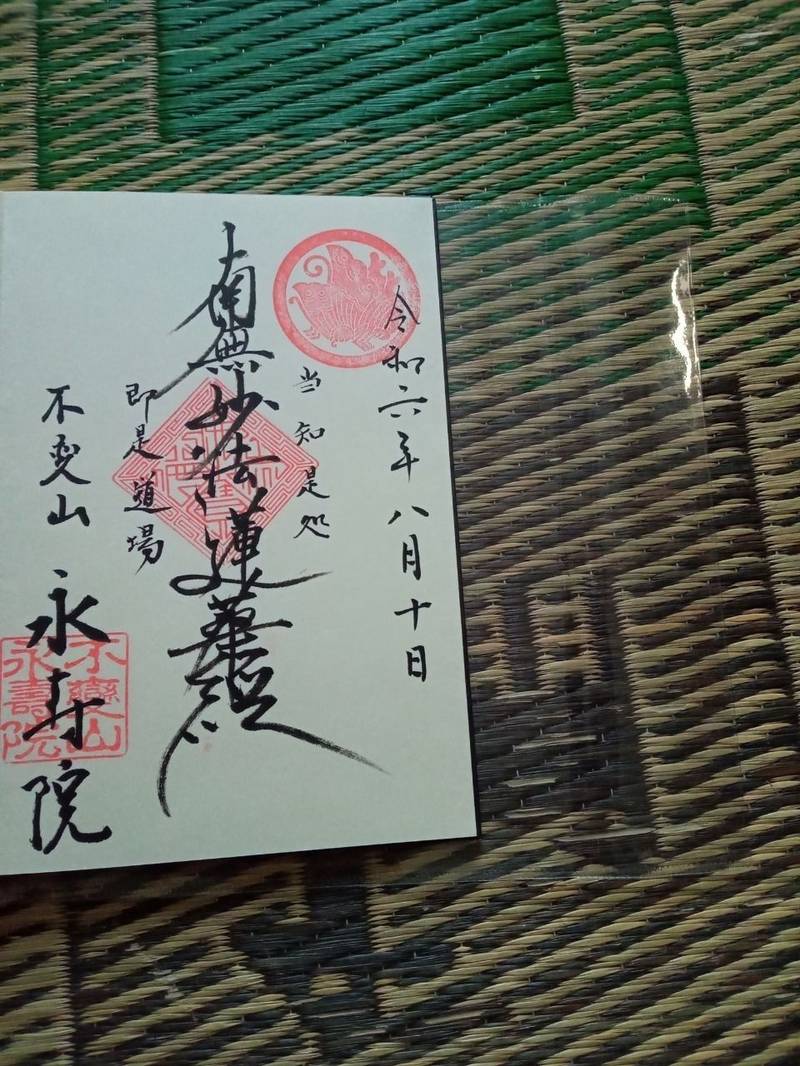 令和六年八月十日
当知是処
南無妙法蓮華経
即是道場
不変山
永寿院
不變山
永壽院